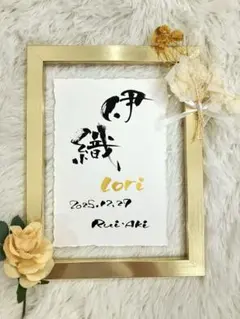 伊
織
Iori
2025.12.27
Rui・Aki